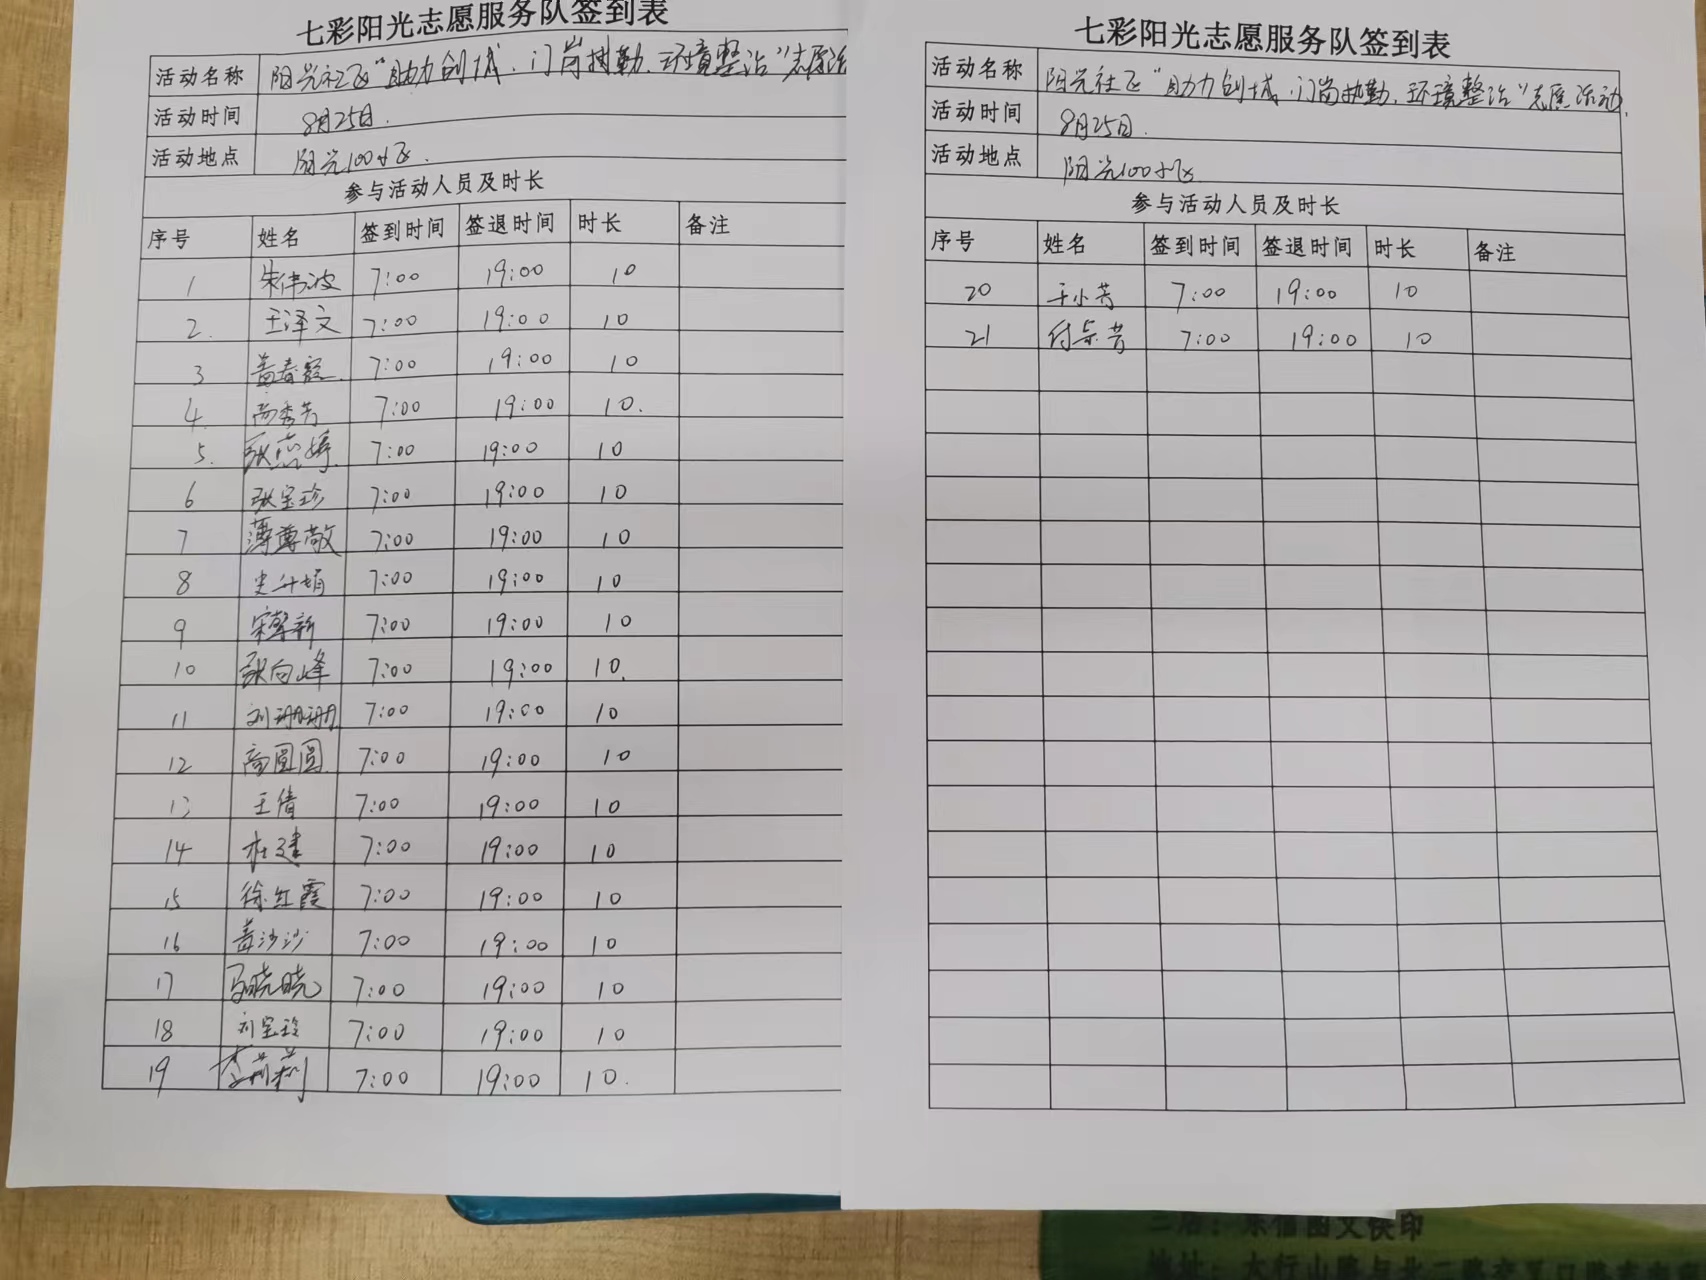 七彩阳光志愿服务队签到表
活动名称 阳光社区“助力创城、门岗执勤、环境整治”志愿活
活动时间 8月25日.
活动地点 阳光100小区.
参与活动人员及时长
序号 姓名 签到时间 签退时间 时长 备注
1 朱伟波 7:00 19:00 10
2. 王泽文 7:00 19:00 10
3 盖春霞. 7:00 19:00 10
4. 尚秀芳 7:00 19:00 10.
5. 7:00 19:00 10
6 张宝珍 7:00 19:00 10
7 薄尊敬 7:00 19:00 10
8 7:00 19:00 10
9 7:00 19:00 10
10 张向峰 7:00 19:00 10.
11 刘珊珊 7:00 19:00 10
12 商圆圆. 7:00 19:00 10
13 王倩 7:00 19:00 10
14 杜建 7:00 19:00 10
15 徐红霞 7:00 19:00 10
16 盖沙沙 7:00 19:00 10
17 马晓晓 7:00 19:00 10
18 刘宝玲 7:00 19:00 10
19 李莉莉 7:00 19:00 10.
七彩阳光志愿服务队签到表
活动名称 阳光社区“助力创城、门岗执勤、环境整治”志愿活动.
活动时间 8月25日.
活动地点 阳光100小区
参与活动人员及时长
序号 姓名 签到时间 签退时间 时长 备注
20 于小芳 7:00 19:00 10
21 7:00 19:00 10